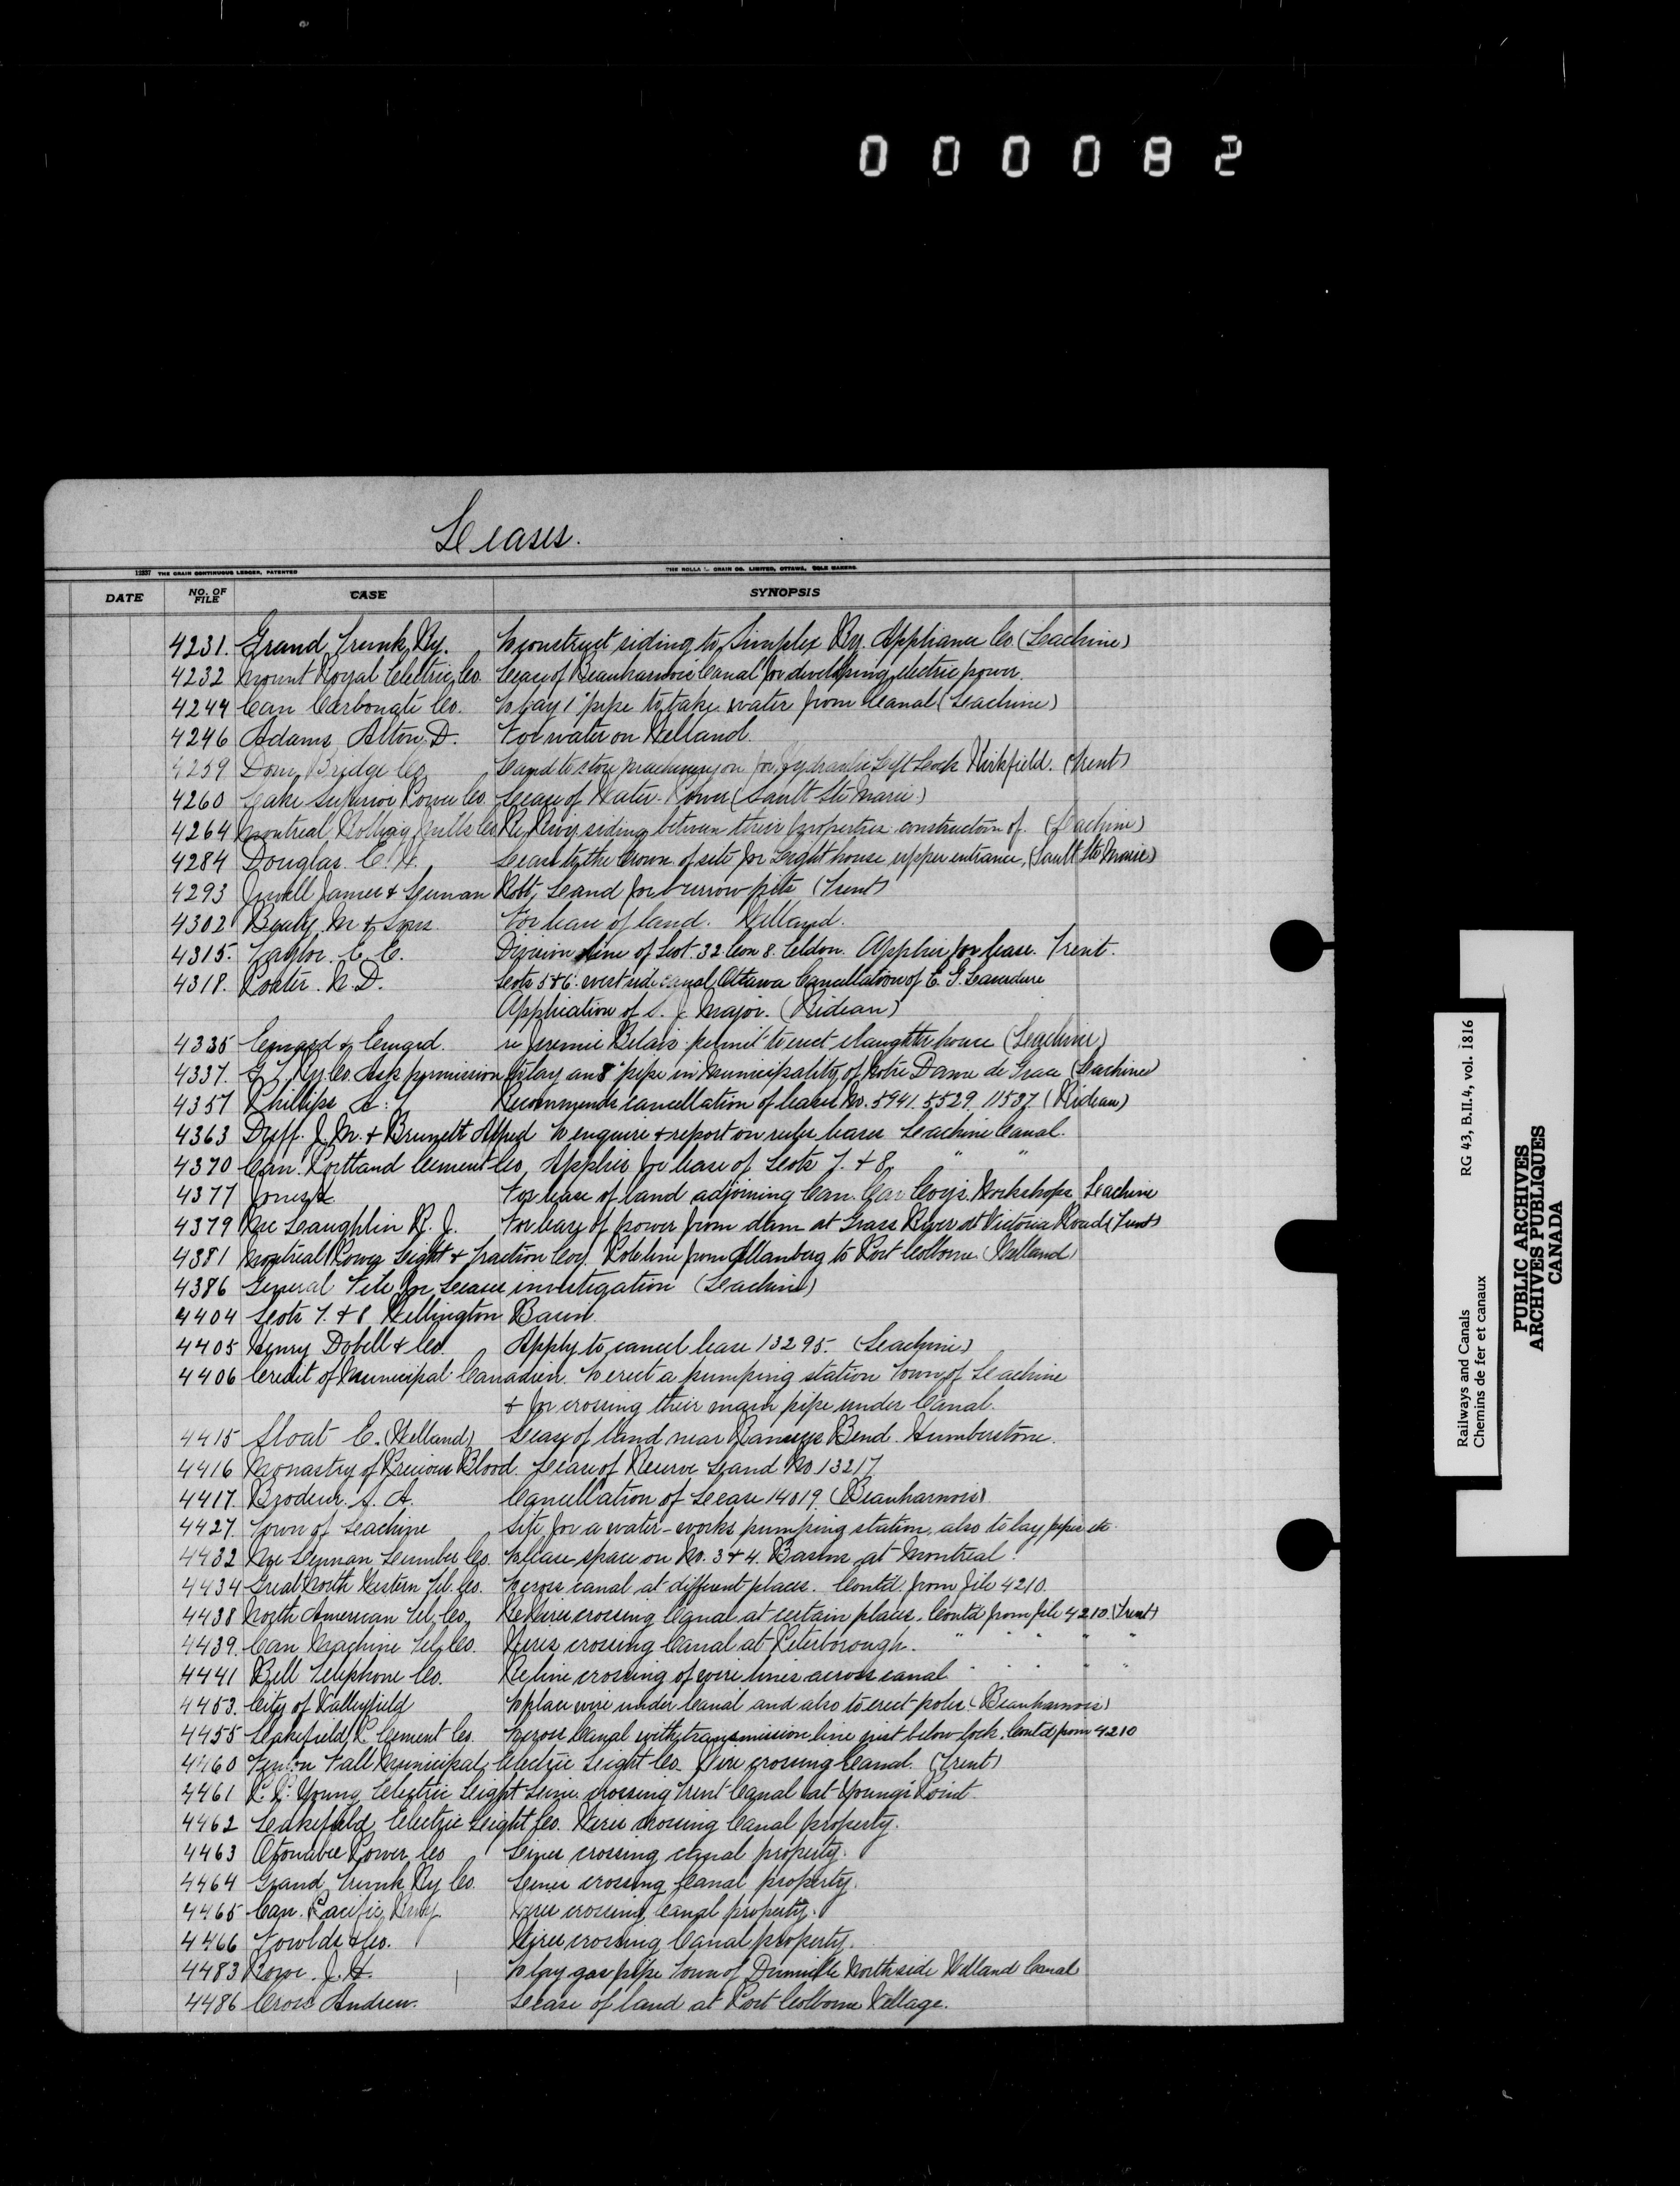 000082
Leases.
12237 THE GRAIN CONTINUOUS LEDGER, PATENTED
THE ROLLA L. CRAIN CO. LIMITED, OTTAWA, SOLE MAKERS.
DATE NO. OF FILE CASE SYNOPSIS
4231. Grand Trunk Ry. To construct siding to Simplex Ry. Appliance Co. (Lachine)
4232 Mount Royal Electric Co. Lease of Beauharnois Canal for developing electric power.
4244 Can Carbonate Co. To lay 1" pipe to take water from Canal (Lachine)
4246 Adams Alton D. For water on Welland.
4259 Dom. Bridge Co. Land to store machinery on for Hydraulic Lift Lock Kirkfield. (Trent)
4260 Lake Superior Power Co. Lease of Water-Power (Sault Ste Marie)
4264 Montreal Rolling Mills Co. Re Rwy siding between their properties construction of. (Lachine)
4284 Douglas. C. H. Lease to the Crown of site for Light house upper entrance, (Sault Ste Marie)
4293 Jewell James & Robt, Land for burrow pits (Trent)
4302 Beatty M & Sons. For lease of land. Welland.
4315. Taylor. C. C. Division line of Lot 32 Con 8. Eldon. Applies for lease. Trent.
4318. Porter. N. D. Lots 5 & 6 west side canal Ottawa Cancellation of E. G. Laverdure
Application of S. J. Major. (Rideau)
4335 Emard & Emard. re Jeremie Belair permit to erect slaughter house (Lachine)
4337. G T Ry Co. Ask permission to lay an 8" pipe in Municipality of Notre Dame de Grace (Lachine)
4357 Phillips A. Recommends cancellation of leases No. 5941. 5529 11537. (Rideau)
4363 Duff. J. M. & Brunett Alfred To enquire & report on leases Lachine Canal.
4370 Can. Portland Cement Co, Applies for lease of Lots 7. & 8, " "
4377 Jones For lease of land adjoining Can. Car Coy's Workshops Lachine
4379 McLaughlin R. J. For lease of power from dam at Grass River at Victoria Road (Trent)
4381 Montreal Power Light & Traction Coy. Pole line from Allanburg to Port Colborne (Welland)
4386 General File for Leases investigation (Lachine)
4404 Lots 7. & 8 Wellington Basin.
4405 Henry Dobell & Co. Apply to cancel lease 13295. (Lachine)
4406 Credit of Municipal Canadien. To erect a pumping station Town of Lachine
& for crossing their main pipe under Canal.
4415 Sloat E. (Welland) Lease of land near Rameys Bend. Humberstone.
4416 Monastry of Precious Blood. Lease of Reserve Land No 13217
4417. Brodeur. S. A. Cancellation of Lease 14019. (Beauharnois)
4427. Town of Lachine Site for a water-works pumping station, also to lay pipes etc.
4432 Lumber Co. To lease space on No. 3 & 4. Basins at Montreal.
4434 Great North Western Tel. Co. To cross canal at different places. Contd. from file 4210.
4438 North American Tel. Co., Re Wires crossing Canal at certain places. Contd from file 4210. (Trent)
4439. Can Machine Tel. Co. Wires crossing Canal at Peterborough. " " " " "
4441 Bell Telephone Co. Re line crossing of wire lines across canal " " " " "
4453. City of Valleyfield To place wire under Canal and also to erect poles. (Beauharnois)
4455 Lakefield P. Cement Co. To cross Canal with transmission line just below lock. Contd from 4210
4460 Fenelon Falls Municipal Electric Light Co. Wire crossing Canal. (Trent)
4461 P. P. Young Electric Light Line crossing Trent Canal at Young's Point.
4462 Lakefield Electric Light Co. Wires crossing Canal property.
4463 Otonabee Power Co Lines crossing canal property.
4464 Grand Trunk Ry Co. Lines crossing Canal property.
4465 Can. Pacific Rwy. Wires crossing Canal property.
4466 Fowlds & Co. Wires crossing Canal property.
4483 Rowe. J. H. To lay gas pipe Town of Dunnville North side Welland Canal
4486 Cross Andrew. Lease of land at Port Colborne Village.
Railways and Canals RG 43, B.II.4, vol. 1816
Chemins de fer et canaux
PUBLIC ARCHIVES
ARCHIVES PUBLIQUES
CANADA